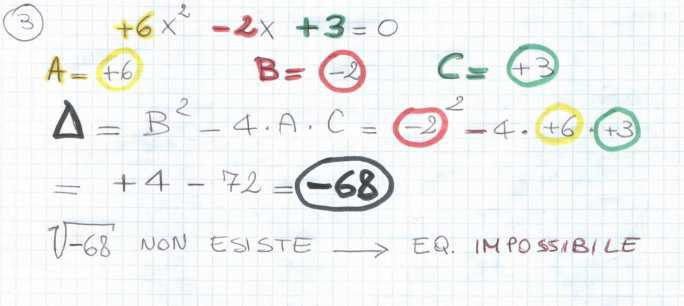 3 +6x² -2x +3 = 0
A = +6 B = -2 C = +3
Δ = B² - 4 · A · C = -2² - 4 · +6 · +3
= +4 - 72 = -68
√-68 NON ESISTE → EQ. IMPOSSIBILE